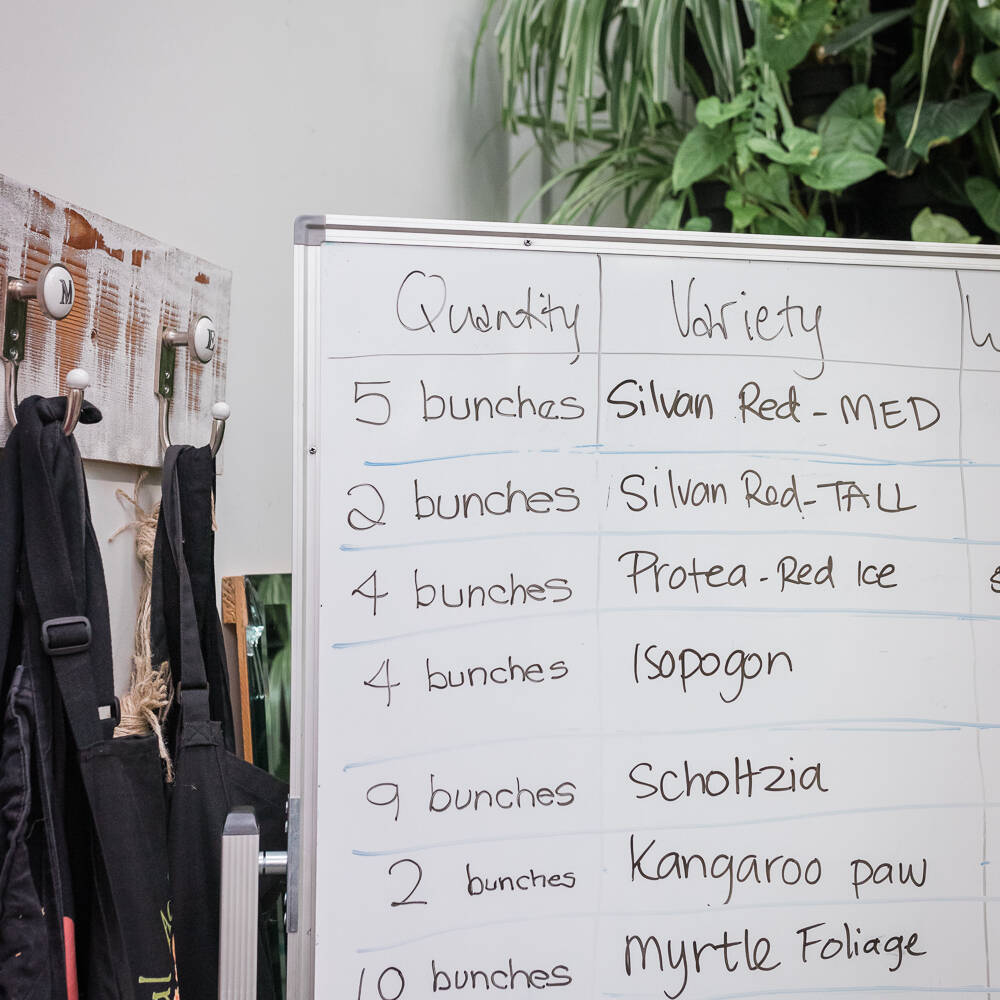 M
E
Quantity Variety
5 bunches Silvan Red - MED
2 bunches Silvan Red - TALL
4 bunches Protea - Red Ice
4 bunches Isopogon
9 bunches Scholtzia
2 bunches Kangaroo paw
10 bunches Myrtle Foliage